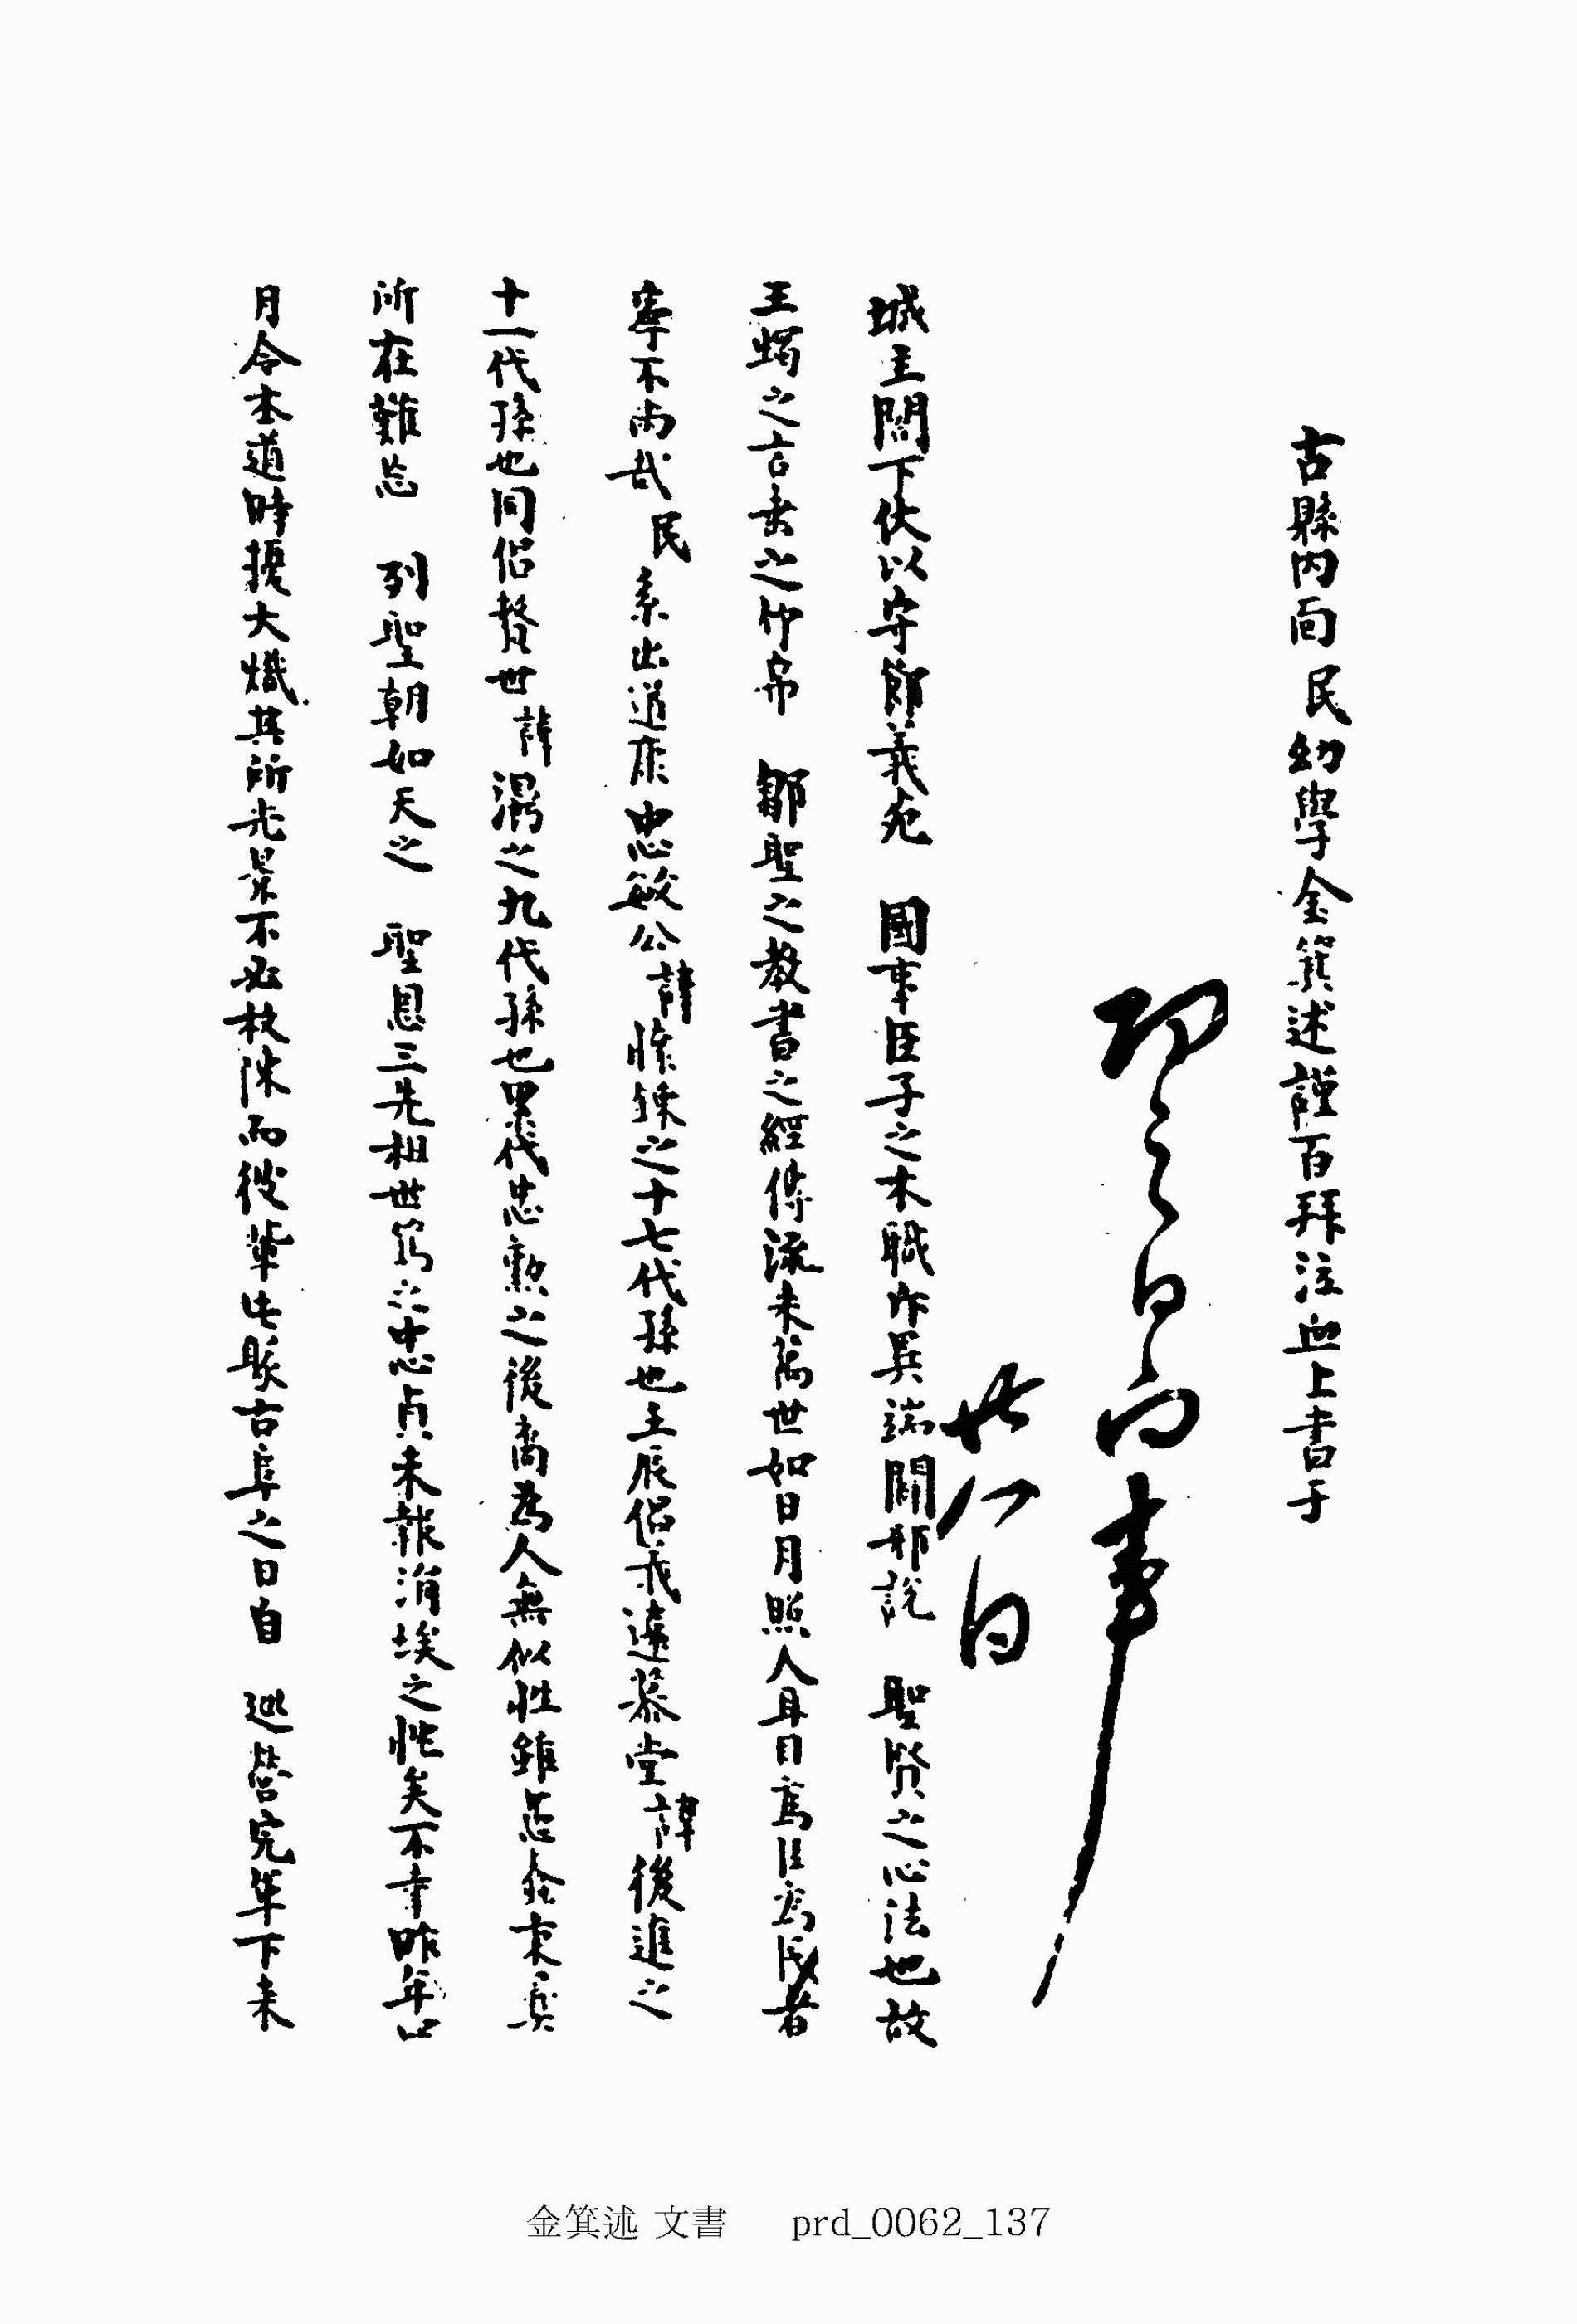 古縣內面民幼學金箕述謹百拜泣血上書于
城主閤下伏以守節義死 國事臣子之本職斥異端闢邪說 聖賢之心法也故
王蠋之言垂之竹帛 鄒聖之教書之經傳流來萬世如日月照人耳目爲臣爲民者
寧不尚哉民系出道康忠敏公諱悚之十七代孫也壬辰倡義遠慕堂諱後進之
十一代孫也同倡贊世諱之九代孫也累代忠勳之後裔爲人無似性雖孟秉彛
所在難忘 列聖朝如天之 聖恩三先祖世篤之忠貞未報涓埃之忱矣不幸昨年
月令本道時擾大熾其所光景不必枚陳而彼輩屯聚古阜之日自 巡營完軍下來
卄八日
金箕述 文書 prd_0062_137